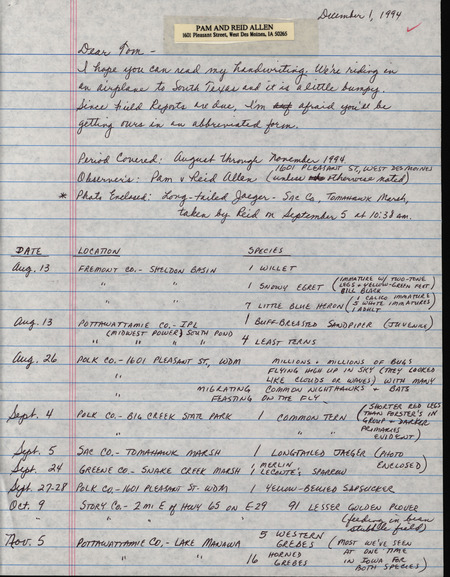 December 1, 1994
PAM AND REID ALLEN
1601 Pleasant Street, West Des Moines, IA 50265
Dear Tom -
I hope you can read my handwriting. We're riding in
an airplane to South Texas and it is a little bumpy.
Since Field Reports are due, I'm afraid you'll be
getting ours in an abbreviated form.
Period Covered: August through November 1994
1601 PLEASANT ST, WEST DES MOINES
Observers: Pam & Reid Allen (unless otherwise noted)
* Photo Enclosed: Long-tailed Jaeger - Sac Co, Tomahawk Marsh,
taken by Reid on September 5 at 10:38 am.
DATE LOCATION SPECIES
Aug. 13 FREMONT CO. - SHELDON BASIN 1 WILLET
" 1 SNOWY EGRET (IMMATURE W/ TWO-TONE
LEGS & YELLOW-GREEN FEET)
BILL BLACK
" 7 LITTLE BLUE HERON (1 CALICO IMMATURE
5 WHITE IMMATURES
1 ADULT)
Aug. 13 POTTAWATTAMIE CO. - IPL 1 BUFF-BREASTED SANDPIPER (JUVENILE)
(MIDWEST POWER) SOUTH POND
" " " " 4 LEAST TERNS
Aug. 26 POLK CO. - 1601 PLEASANT ST, WDM MILLIONS & MILLIONS OF BUGS
FLYING HIGH UP IN SKY (THEY LOOKED
LIKE CLOUDS OR WAVES) WITH MANY
MIGRATING COMMON NIGHTHAWKS & BATS
FEASTING ON THE FLY
Sept. 4 POLK CO. - BIG CREEK STATE PARK 1 COMMON TERN (SHORTER RED LEGS
THAN FORSTER'S IN
GROUP & DARKER
PRIMARIES
EVIDENT)
Sept. 5 SAC CO. - TOMAHAWK MARSH 1 LONGTAILED JAEGER (PHOTO
ENCLOSED)
Sept. 24 GREENE CO. - SNAKE CREEK MARSH 1 MERLIN
1 LECONTE'S SPARROW
Sept. 27-28 POLK CO. - 1601 PLEASANT ST - WDM 1 YELLOW-BELLIED SAPSUCKER
Oct. 9 STORY CO. - 2 mi E of Hwy 65 on E-29 91 LESSER GOLDEN PLOVER
(feeding in bean
stubble field)
Nov. 5 POTTAWATTAMIE CO. - LAKE MANAWA 5 WESTERN
GREBES (MOST WE'VE SEEN
AT ONE TIME
IN IOWA FOR
BOTH SPECIES)
" 16 HORNED
GREBES